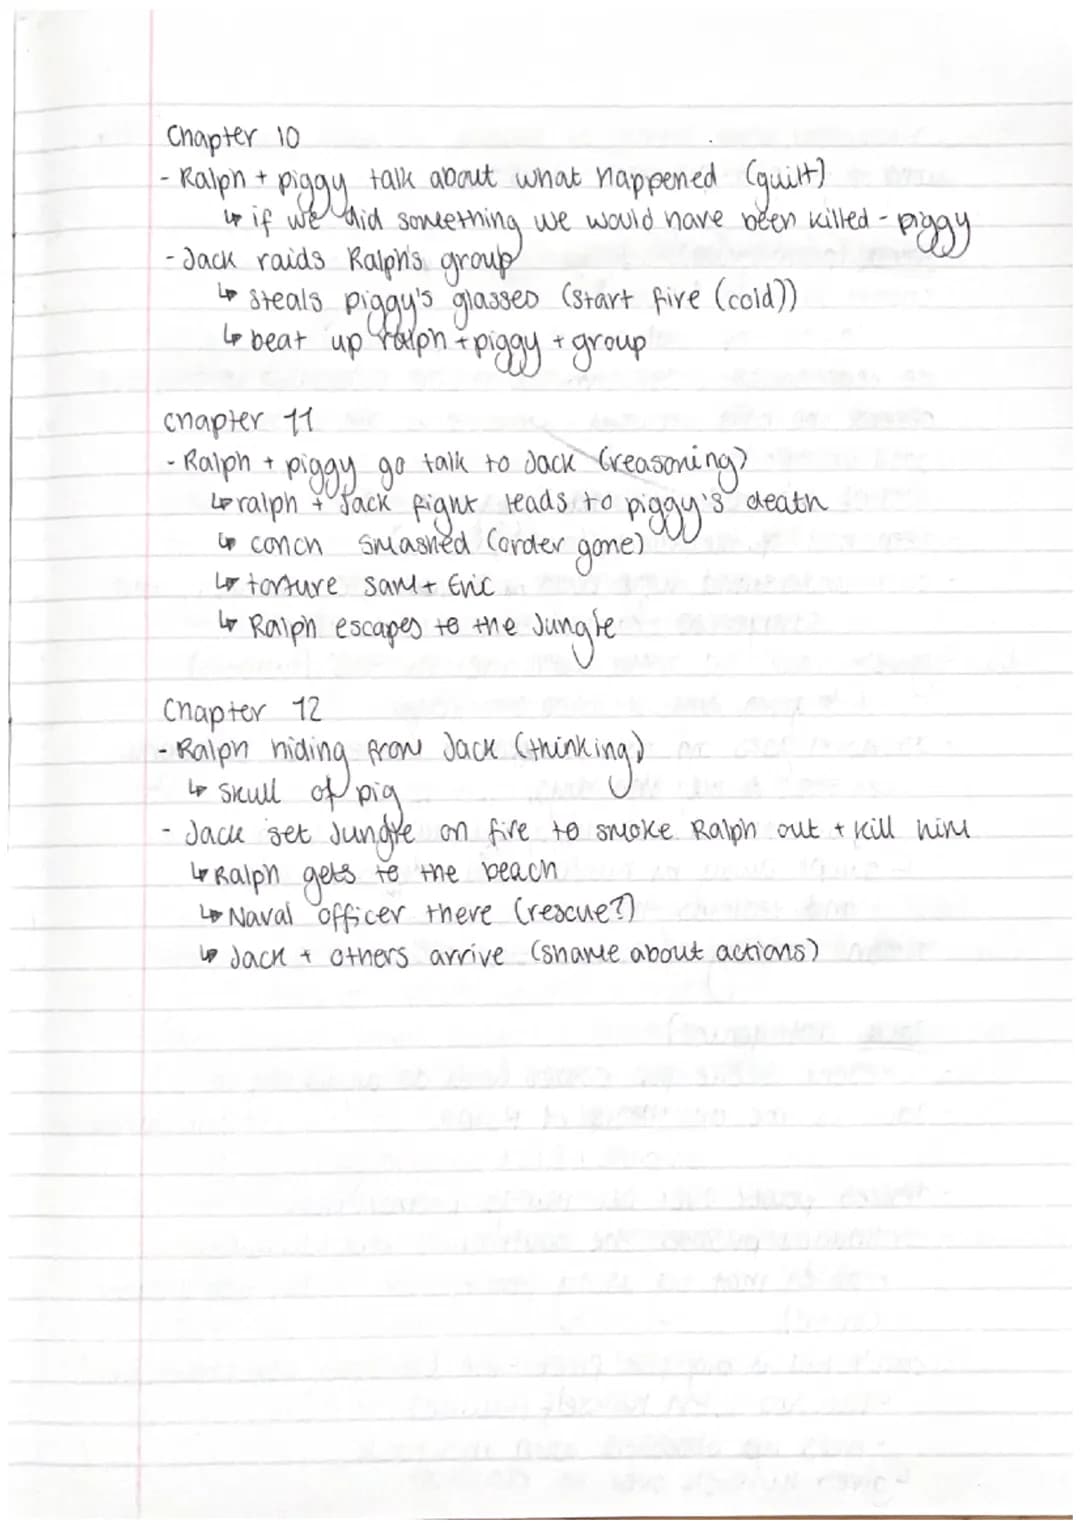 Chapter 10
- Ralph + piggy talk about what happened (guilt)
↳ if we did something we would have been killed - piggy
- Jack raids Ralph's group
↳ steals piggy's glasses (start fire (cold))
↳ beat up ralph + piggy + group
chapter 11
- Ralph + piggy go talk to Jack (reasoning)
↳ ralph + Jack fight leads to piggy's death
↳ conch smashed (order gone)
↳ torture sam + Eric
↳ Ralph escapes to the Jungle
Chapter 12
- Ralph hiding from Jack (thinking)
↳ skull of pig
- Jack set Jungle on fire to smoke Ralph out + kill him
↳ Ralph gets to the beach
↳ Naval officer there (rescue?)
↳ Jack + others arrive (shame about actions)